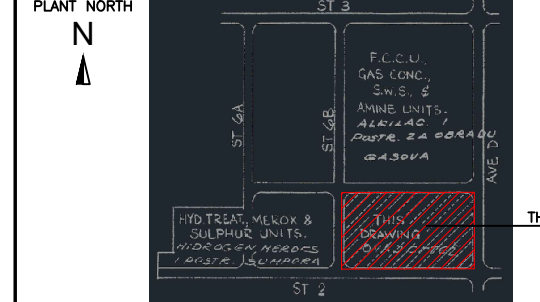 PLANT NORTH
N
ST 3
F.C.C.U.,
GAS CONC.,
S.W.S, &
AMINE UNITS.
ALKILAC. I
POSTR. ZA OBRADU
GASOVA
ST 6A
ST 6B
AVE. D
HYD.TREAT., MEROX &
SULPHUR UNITS.
HIDROGEN, MEROCS
I POSTR. SUMPORA
THIS
DRAWING
TH
ST 2